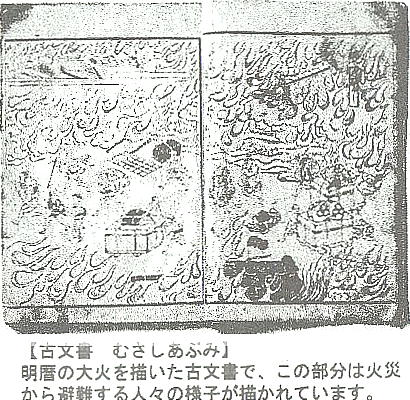 【古文書　むさしあぶみ】
明暦の大火を描いた古文書で、この部分は火災
から避難する人々の様子が描かれています。